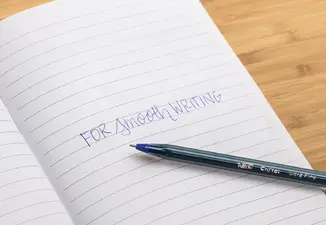 FOR smooth WRITING
BIC Cristal